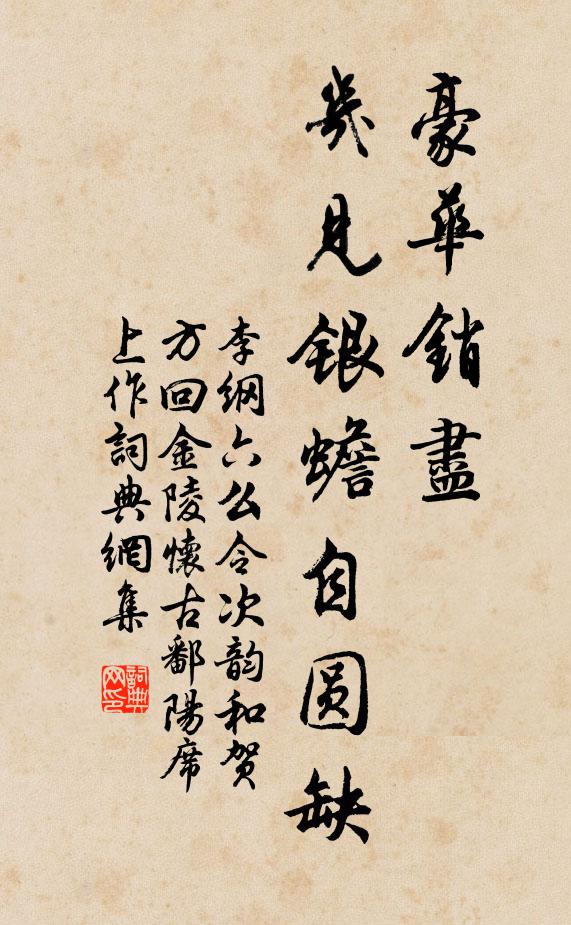 豪華銷盡
幾見銀蟾自圓缺
李綱六么令次韵和贺
方回金陵懷古鄱陽席
上作詞典網集
詞典
网印